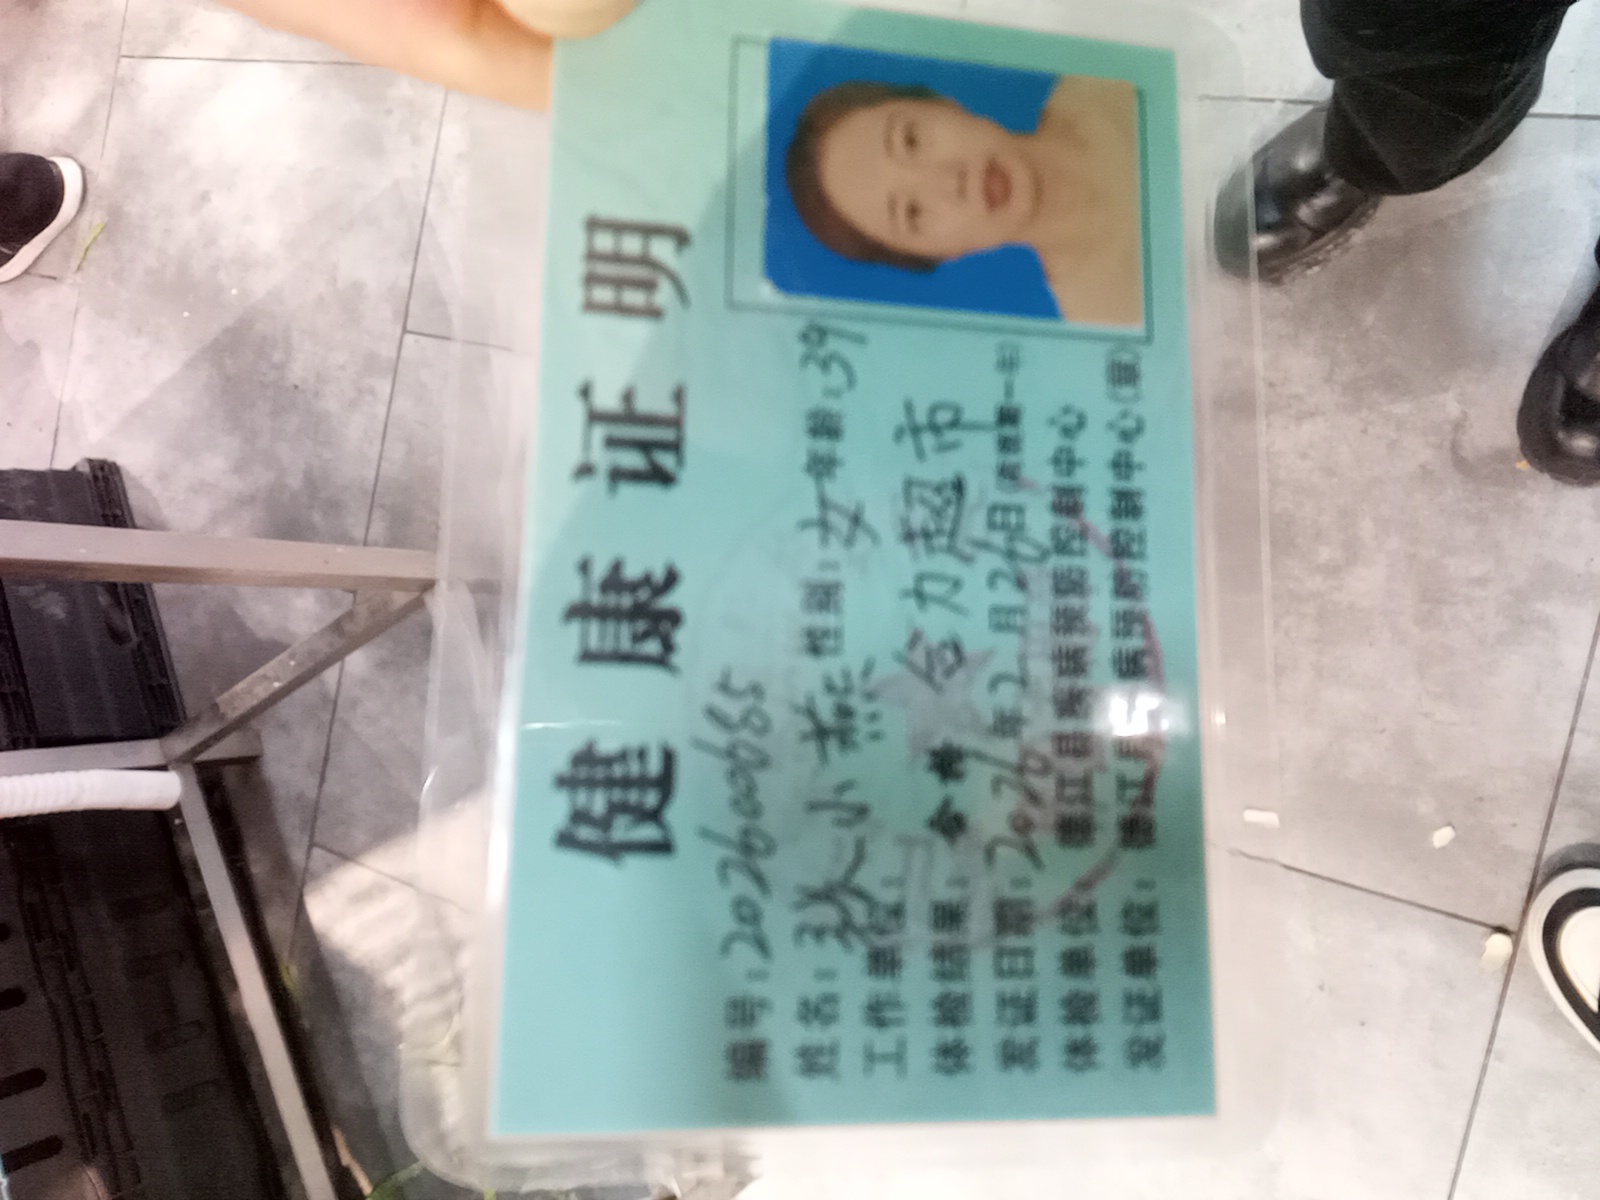 健康证明
编号：2026000685
姓名：张小燕 性别：女 年龄：39
工作单位： 合力超市
体检结果： 合格
发证日期：2026年2月26日(有效期一年)
体检单位： 德江县疾病预防控制中心
发证单位： 德江县疾病预防控制中心(章)